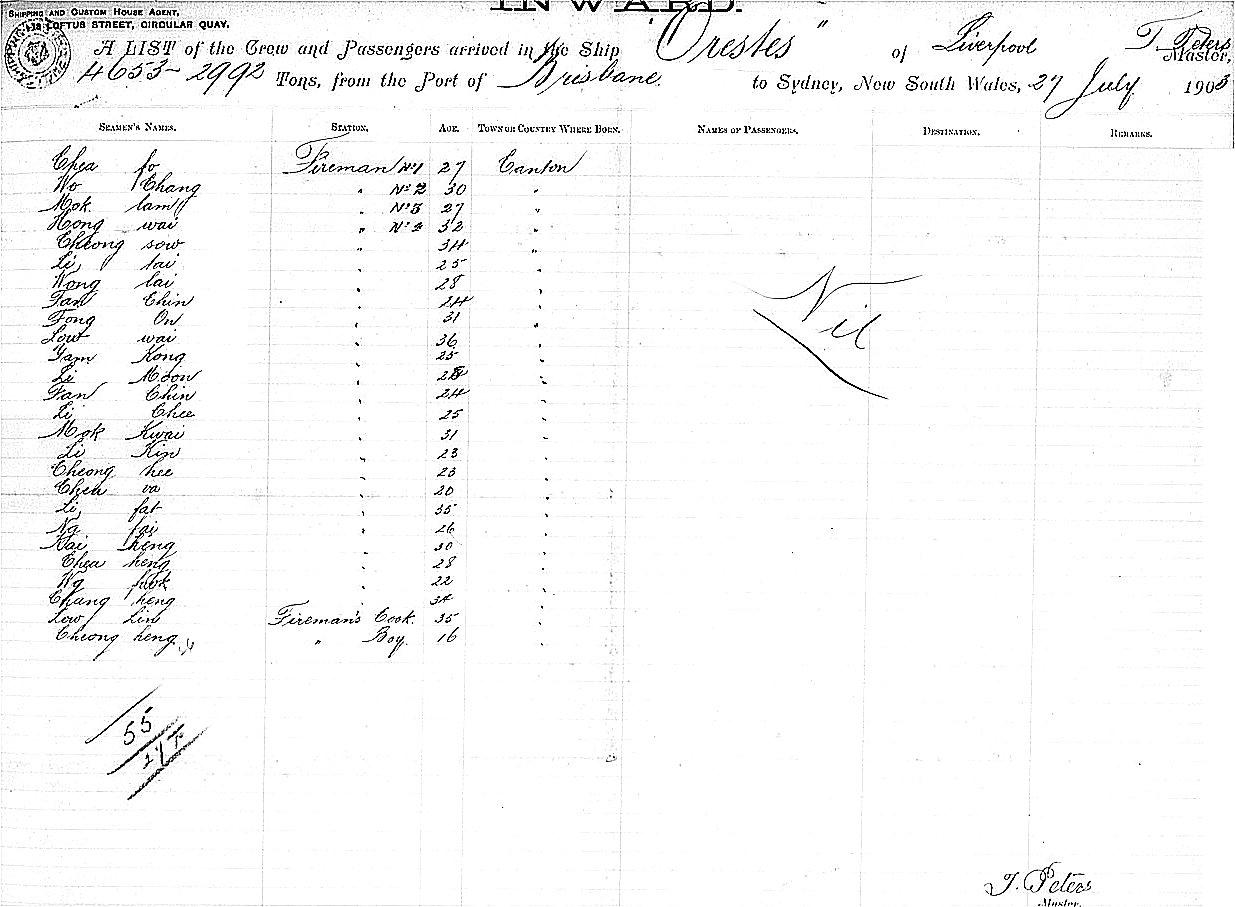 INWARD.
SHIPPING AND CUSTOM HOUSE AGENT,
LOFTUS STREET, CIRCULAR QUAY.
A LIST of the Crew and Passengers arrived in the Ship "Orestes" of Liverpool T. Peters Master,
4653-2992 Tons, from the Port of Brisbane. to Sydney, New South Wales, 27 July 1903
SEAMEN'S NAMES. STATION. AGE. TOWN OR COUNTRY WHERE BORN. NAMES OF PASSENGERS. DESTINATION. REMARKS.
Chea fo Fireman No 1 27 Canton
Wo Chang " No 2 30 "
Mok lam " No 3 27 "
Hong wai " No 2 32 "
Cheong sow " 34 "
Li tai " 25 "
Wong lai " 28 "
Tan Chin " 24 "
Fong On " 31 "
Low wai " 36 "
Yam Kong " 25 "
Li Moon " 28 "
Fan Chin " 24 "
Li Chee " 25 "
Mok Kwai " 31 "
Li Kin " 23 "
Cheong hee " 23 "
Chea va " 20 "
Li fat " 35 "
Ng fai " 26 "
Kai heng " 30 "
Chea heng " 28 "
Ng fook " 22 "
Chang heng " 34 "
Low Lin Fireman's Cook. 35 "
Cheong heng " Boy. 16 "
Nil
55
T. Peters
Master.